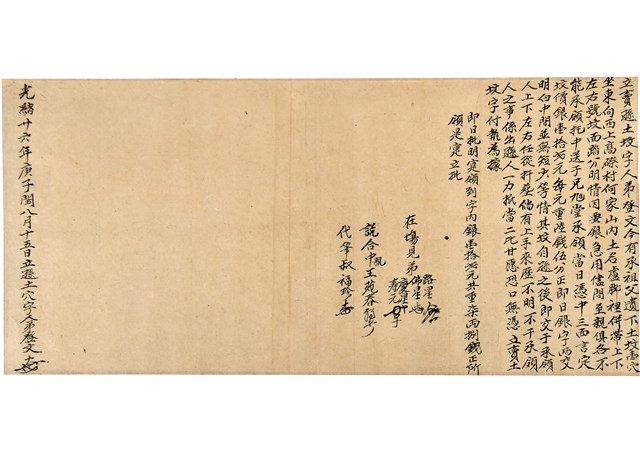 立賣遜土坟字人弟啓文今有承祖父遺下坟壹穴
坐東向西上高磜村何家山內土名盧腳裡併帶上下
左右虎坟兩踏分明情因要銀急用儘問至親俱各不
能承領托中送于兄旭堂承領當日憑中三面言定
坟價銀壹拾𠮷元每元重柒錢伍分正即日銀字兩交
明白中間並無短少等情其坟自遜之後即交于承領
人上下左右任從扦葬倘有上手來歷不明不干承領
人之事係出遜人一力抵當二比甘愿恐口無憑立賣土
坟字付執為據
即日批明寔領到字內銀壹拾元共重柒兩捌錢正所
領是寔立批
在場見弟
路星
佛星
壽元
說合中親王苑春
代筆叔福珍
光緒廿六年庚子閏八月十五日立遜土穴字人弟啓文